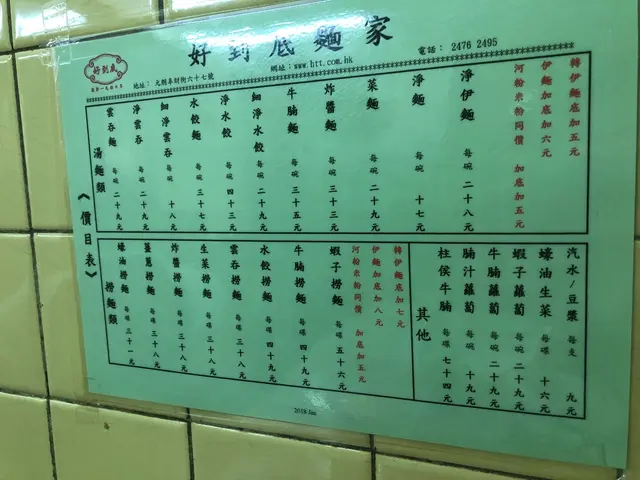 好到底麵家
電話： 2476 2495
網址：www.htt.com.hk
地址： 元朗阜財街六十七號
好到底
轉伊麵底加五元
伊麵加底加六元
河粉米粉同價 加底加五元
淨伊麵 每碗 二十八元
淨麵 每碗 十七元
菜麵 每碗 二十九元
炸醬麵 每碗 三十三元
牛腩麵 每碗 三十五元
細淨水餃 每碗 二十九元
淨水餃 每碗 四十三元
水餃麵 每碗 三十七元
細淨雲吞 每碗 十八元
淨雲吞 每碗 二十九元
雲吞麵 每碗 二十九元
湯麵類
《價目表》
汽水/豆漿 每支 九元
蠔油生菜 每碟 十六元
蝦子蘿蔔 每碗 二十九元
牛腩蘿蔔 每碗 二十九元
腩汁蘿蔔 每碗 二十九元
柱侯牛腩 每碗 七十四元
其他
轉伊麵底加七元
伊麵加底加八元
河粉米粉同價 加底加五元
蝦子撈麵 每碟 五十六元
牛腩撈麵 每碟 四十九元
水餃撈麵 每碟 四十九元
雲吞撈麵 每碟 三十八元
生菜撈麵 每碟 三十八元
炸醬撈麵 每碟 三十八元
薑蔥撈麵 每碟 三十一元
蠔油撈麵 每碟 三十一元
撈麵類
2018/Jan